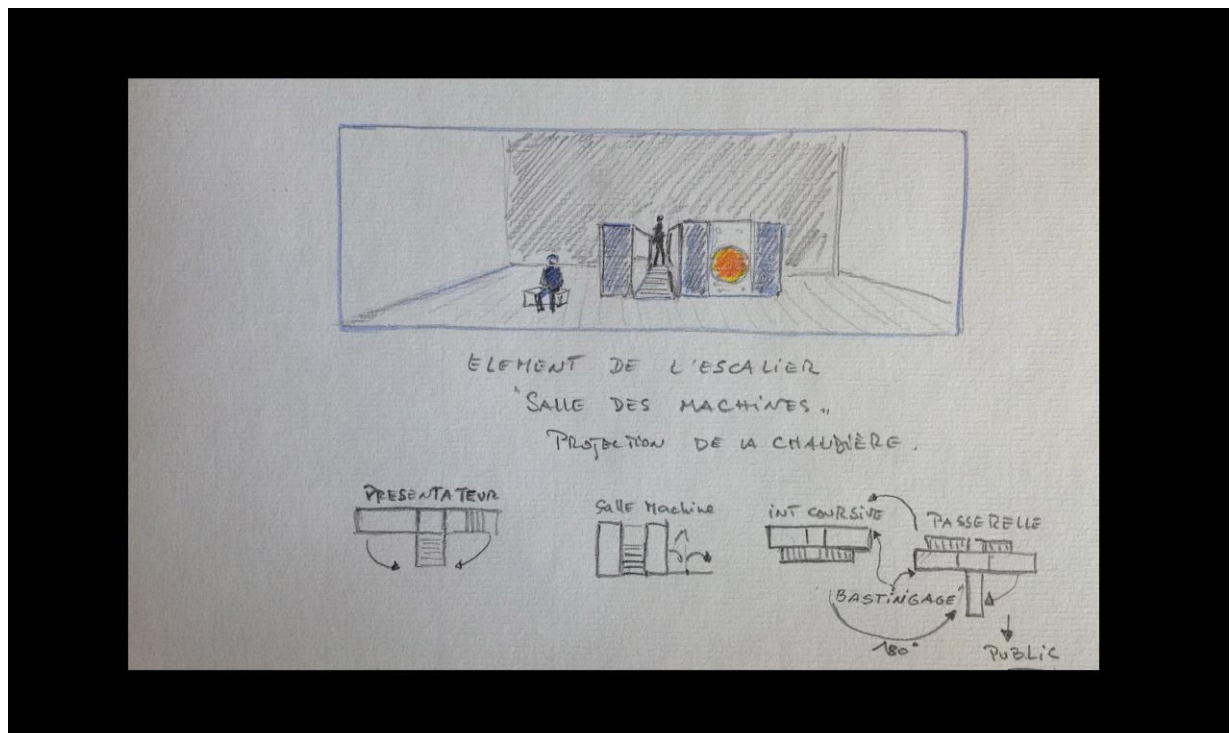 ELEMENT DE L'ESCALIER
"SALLE DES MACHINES"
PROJECTION DE LA CHAUDIÈRE.
PRESENTATEUR
Salle Machine
INT COURSIVE
PASSERELLE
BASTINGAGE
180°
PUBLIC